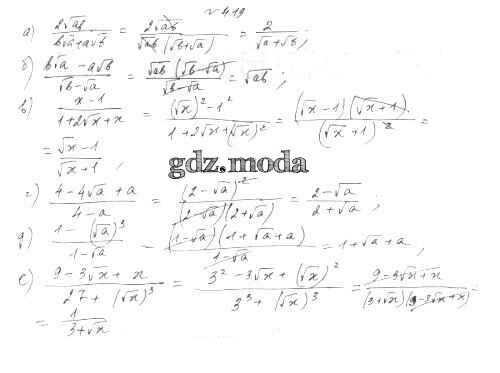 № 419
а) 2√ab / (b√a+a√b) = 2√ab / (√ab (√b+√a)) = 2 / (√a+√b) ;
б) (b√a - a√b) / (√b-√a) = √ab (√b-√a) / (√b-√a) = √ab ;
в) (x-1) / (1+2√x+x) = ((√x)² - 1²) / (1+2√x+(√x)²) = (√x-1)(√x+1) / (√x+1)² =
= (√x-1) / (√x+1) ,
gdz.moda
г) (4-4√a+a) / (4-a) = (2-√a)² / ((2-√a)(2+√a)) = (2-√a) / (2+√a) ;
д) (1-(√a)³) / (1-√a) = (1-√a)(1+√a+a) / (1-√a) = 1+√a+a ,
е) (9-3√x+x) / (27+(√x)³) = (3²-3√x+(√x)²) / (3³+(√x)³) = (9-3√x+x) / ((3+√x)(9-3√x+x)) =
= 1 / (3+√x)